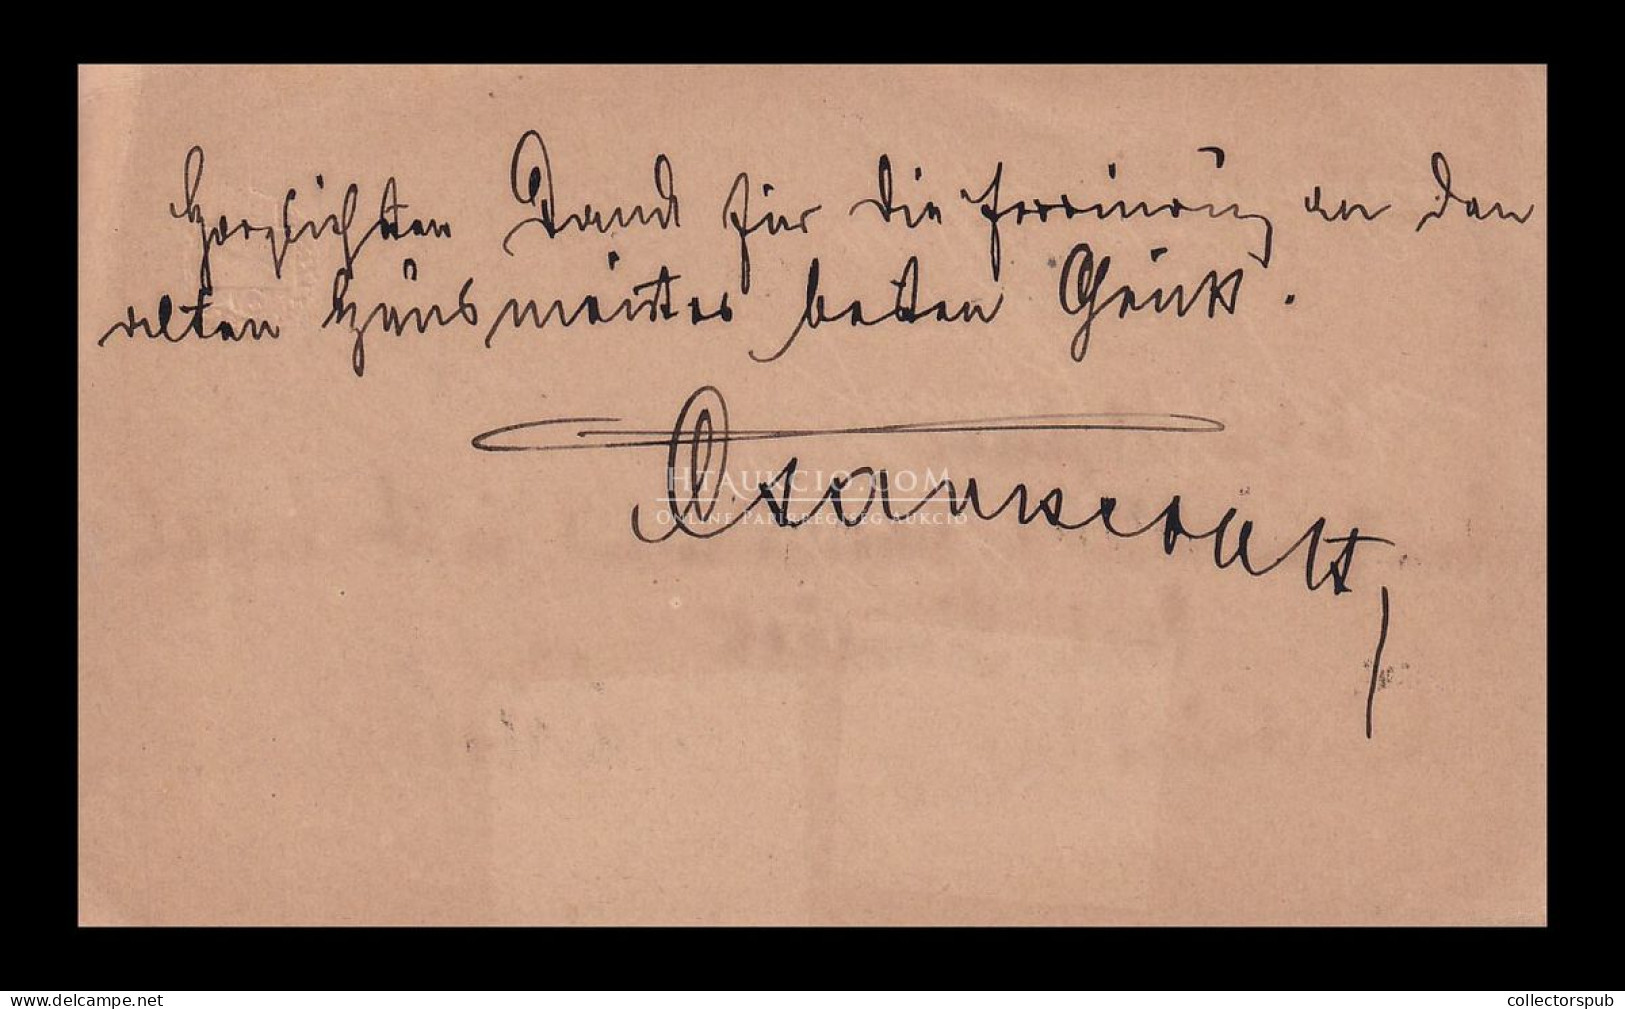 Herzlichsten Dank für die Erinnerung an den
alten Hausmeister besten Gruß.
HTAUKCIO.COM
ONLINE PAPÍRRÉGISÉG AUKCIÓ
www.delcampe.net
collectorspub